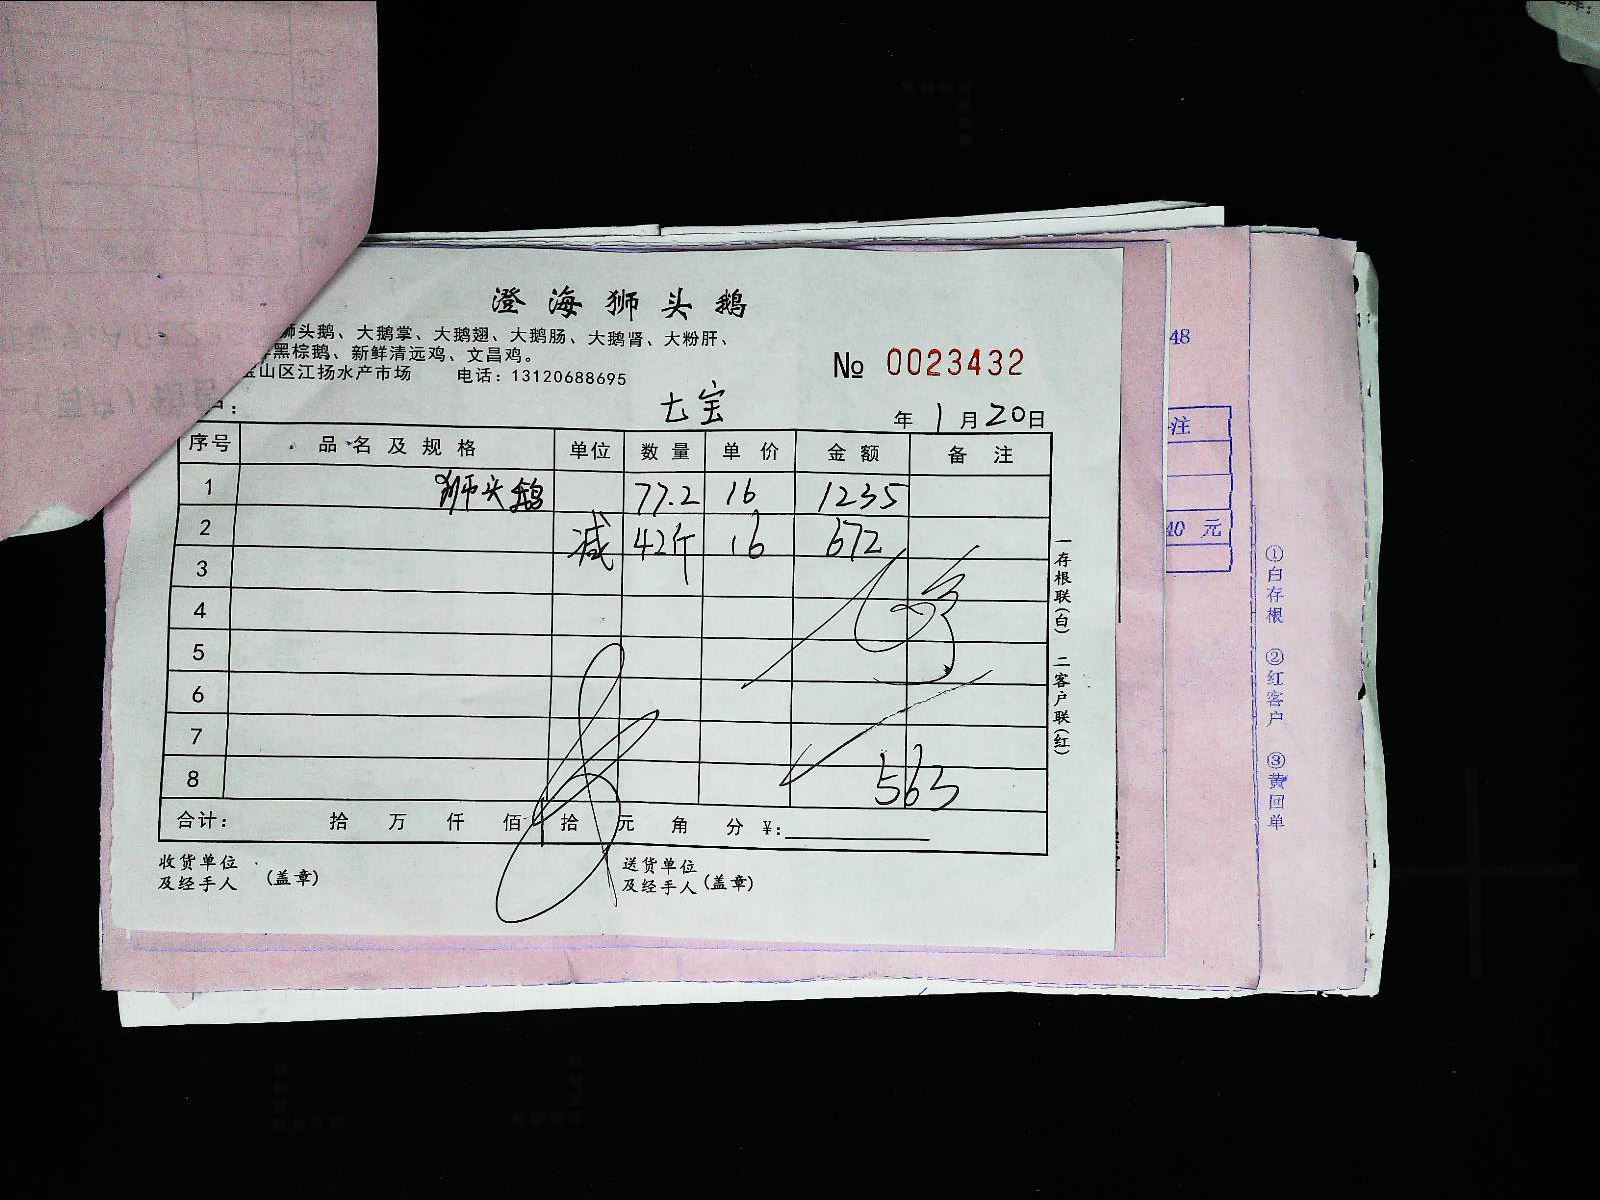 澄海狮头鹅
狮头鹅、大鹅掌、大鹅翅、大鹅肠、大鹅肾、大粉肝、
黑棕鹅、新鲜清远鸡、文昌鸡。
宝山区江扬水产市场 电话：13120688695
№ 0023432
七宝
年 1 月 20 日
序号 品名及规格 单位 数量 单价 金额 备注
1 狮头鹅 77.2 16 1235
2 减 42斤 16 672
3
4
5
6
7
8 563
合计： 拾 万 仟 佰 拾 元 角 分 ¥:
收货单位
及经手人 (盖章)
送货单位
及经手人 (盖章)
一存根联(白) 二客户联(红)
48
注
40 元
①白存根 ②红客户 ③黄回单